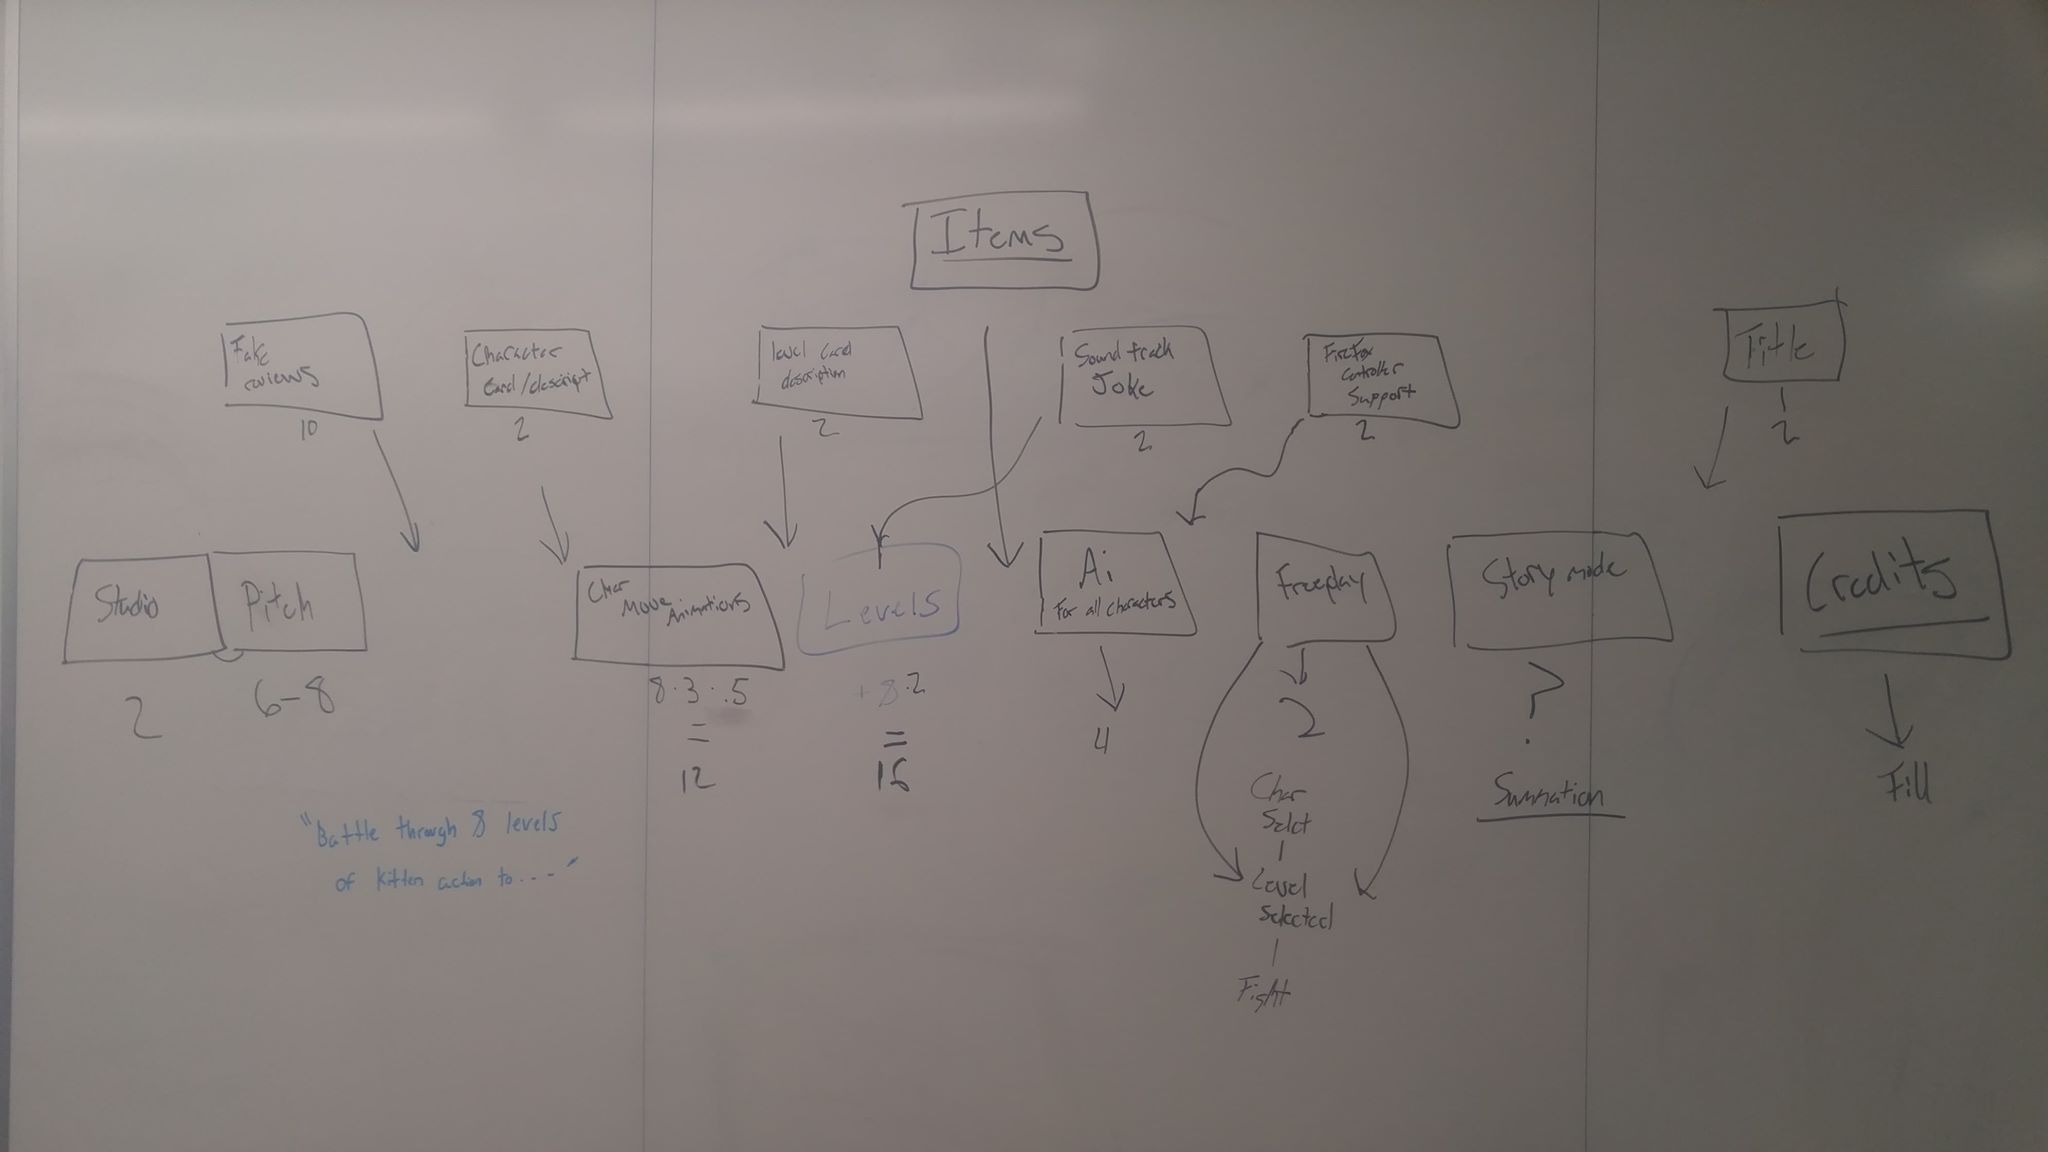 Items
Fake
reviews
10
Character
Card/descript
2
level card
description
2
Sound track
Joke
2
FireFox
Controller
Support
2
Title
2
Studio
2
Pitch
6-8
Char
Move
Animations
8·3·.5
=
12
Levels
+8·2
=
16
Ai
For all characters
4
Freeplay
2
Char
Selct
Level
Selected
Fight
Story mode
?
Summation
Credits
Fill
"Battle through 8 levels
of kitten action to...."